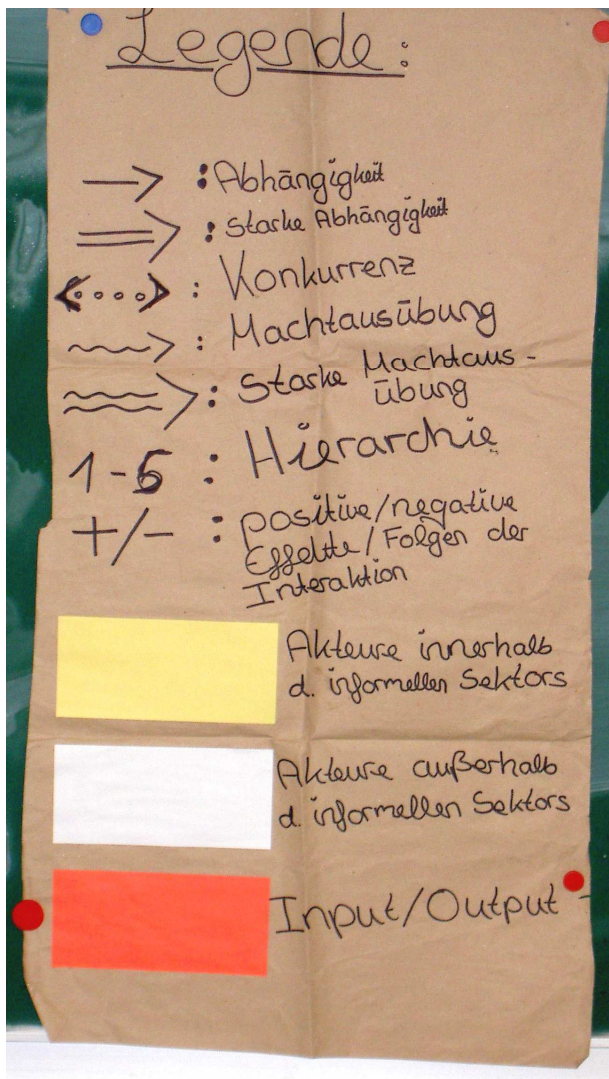 Legende:
: Abhängigkeit
: Starke Abhängigkeit
: Konkurrenz
: Machtausübung
: Starke Machtaus-
übung
1-6 : Hierarchie
+/- : positive/negative
Effekte/Folgen der
Interaktion
Akteure innerhalb
d. informellen Sektors
Akteure außerhalb
d. informellen Sektors
Input/Output